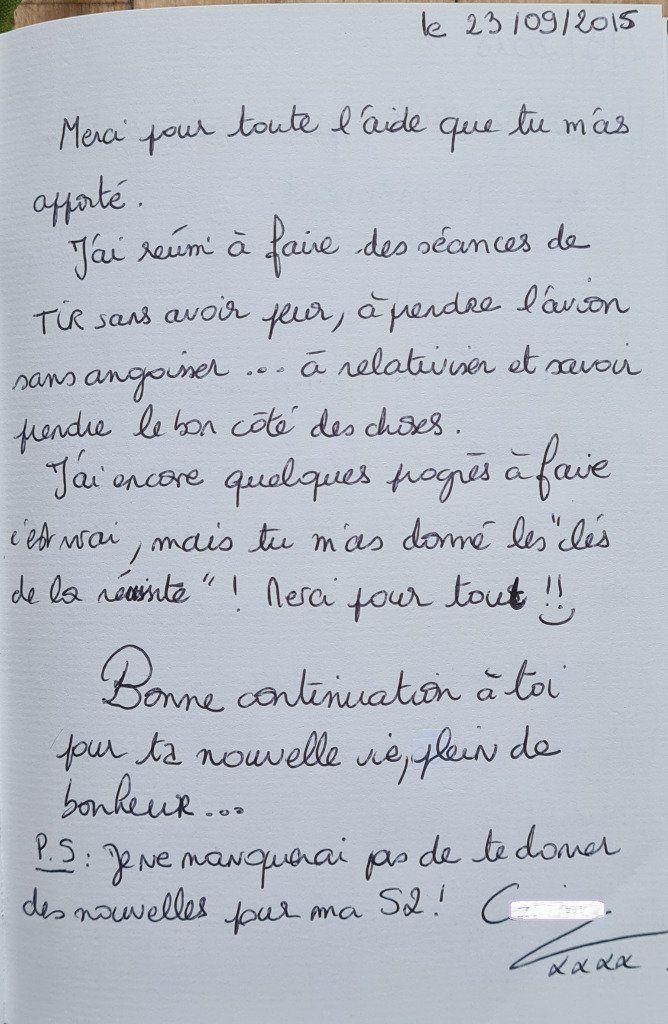 le 23/09/2015
Merci pour toute l'aide que tu m'as
apporté.
J'ai réussi à faire des séances de
TIR sans avoir peur, à prendre l'avion
sans angoisser ... à relativiser et savoir
prendre le bon côté des choses.
J'ai encore quelques progrès à faire
c'est vrai, mais tu m'as donné les "clés
de la réussite" ! Merci pour tout !!
Bonne continuation à toi
pour ta nouvelle vie, plein de
bonheur...
P.S : Je ne manquerai pas de te donner
des nouvelles pour ma S2 !
xxxx